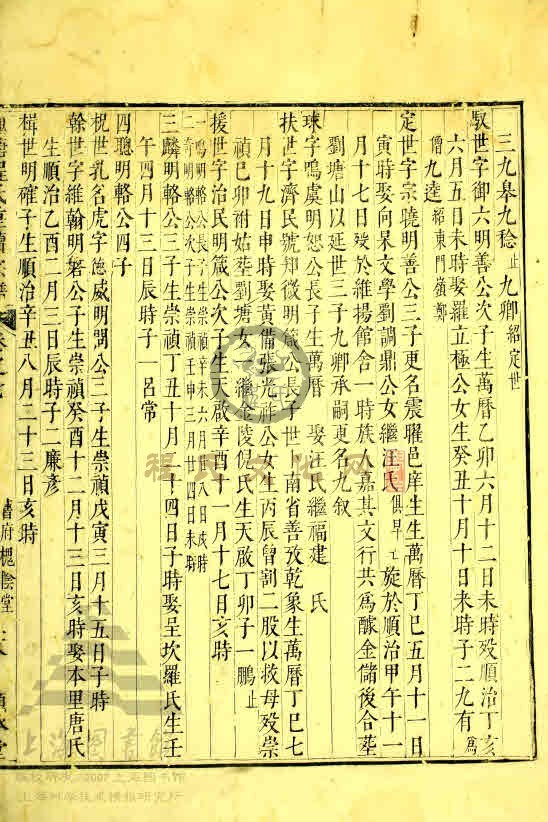 三九皋九稔止 九卿紹定世
馭世字御六明善公次子生萬曆乙卯六月十二日未時歿順治丁亥
六月五日未時娶羅立極公女生癸丑十月十日未時子二九有為
僧九逵紹東門嶺鄭
定世字宗曉明善公三子更名震曜邑庠生生萬曆丁巳五月十一日
寅時娶向杲文學劉謂鼎公女繼汪氏俱早亡旋於順治甲午十一
月十七日歿於維揚館舍一時族人嘉其文行共為醵金儲後合塟
劉塘山以延世三子九卿承嗣更名九叙
球字鳴虞明恕公長子生萬曆 娶汪氏繼福建 氏
扶世字濟民號知微明 公長子世 南省善攷乾象生萬曆丁巳七
月十九日申時娶黃備張光祥公女生丙辰曾割二股以救母歿崇
禎己卯祔姑塟劉塘女一繼金陵倪氏生天啟丁卯子一鵬止
援世字治民明箴公次子生天啟辛酉十一月十七日亥時
一鳴明輅公長子生崇禎辛未六月 八日戌時
二奇明輅公次子生崇禎壬申三月廿四日未時
三麟明輅公三子生崇禎丁丑十月二十四日子時娶呈坎羅氏生壬
午四月十三日辰時子一呂常
四聰明輅公四子
祝世乳名虎字德威明閗公三子生崇禎戊寅三月十五日子時
榦世字維翰明磐公子生崇禎癸酉十二月十三日亥時娶本里唐氏
生順治乙酉二月三日辰時子二廉彥
楫世明確子生順治辛丑八月二十三日亥時
程氏文化网
上海图书馆
版权所有 2007 上海图书馆
上海科学技术情报研究所